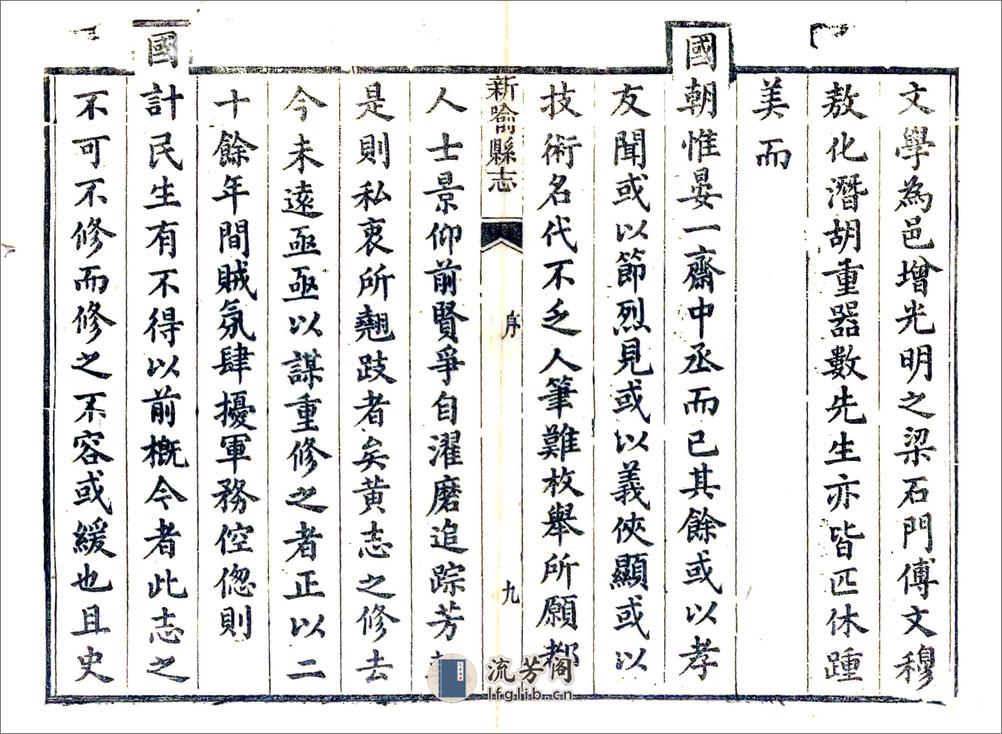 文學為邑增光明之梁石門傅文穆
敖化潛胡重器數先生亦皆匹休踵
美而
國朝惟晏一齋中丞而已其餘或以孝
友聞或以節烈見或以義俠顯或以
技術名代不乏人筆難枚舉所願都
新喻縣志
序
九
人士景仰前賢爭自濯磨追踪芳
是則私衷所翹跂者矣黃志之修去
今未遠亟亟以謀重修之者正以二
十餘年間賊氛肆擾軍務倥偬則
國計民生有不得以前概今者此志之
不可不修而修之不容或緩也且史
流芳阁
lfglib.cn